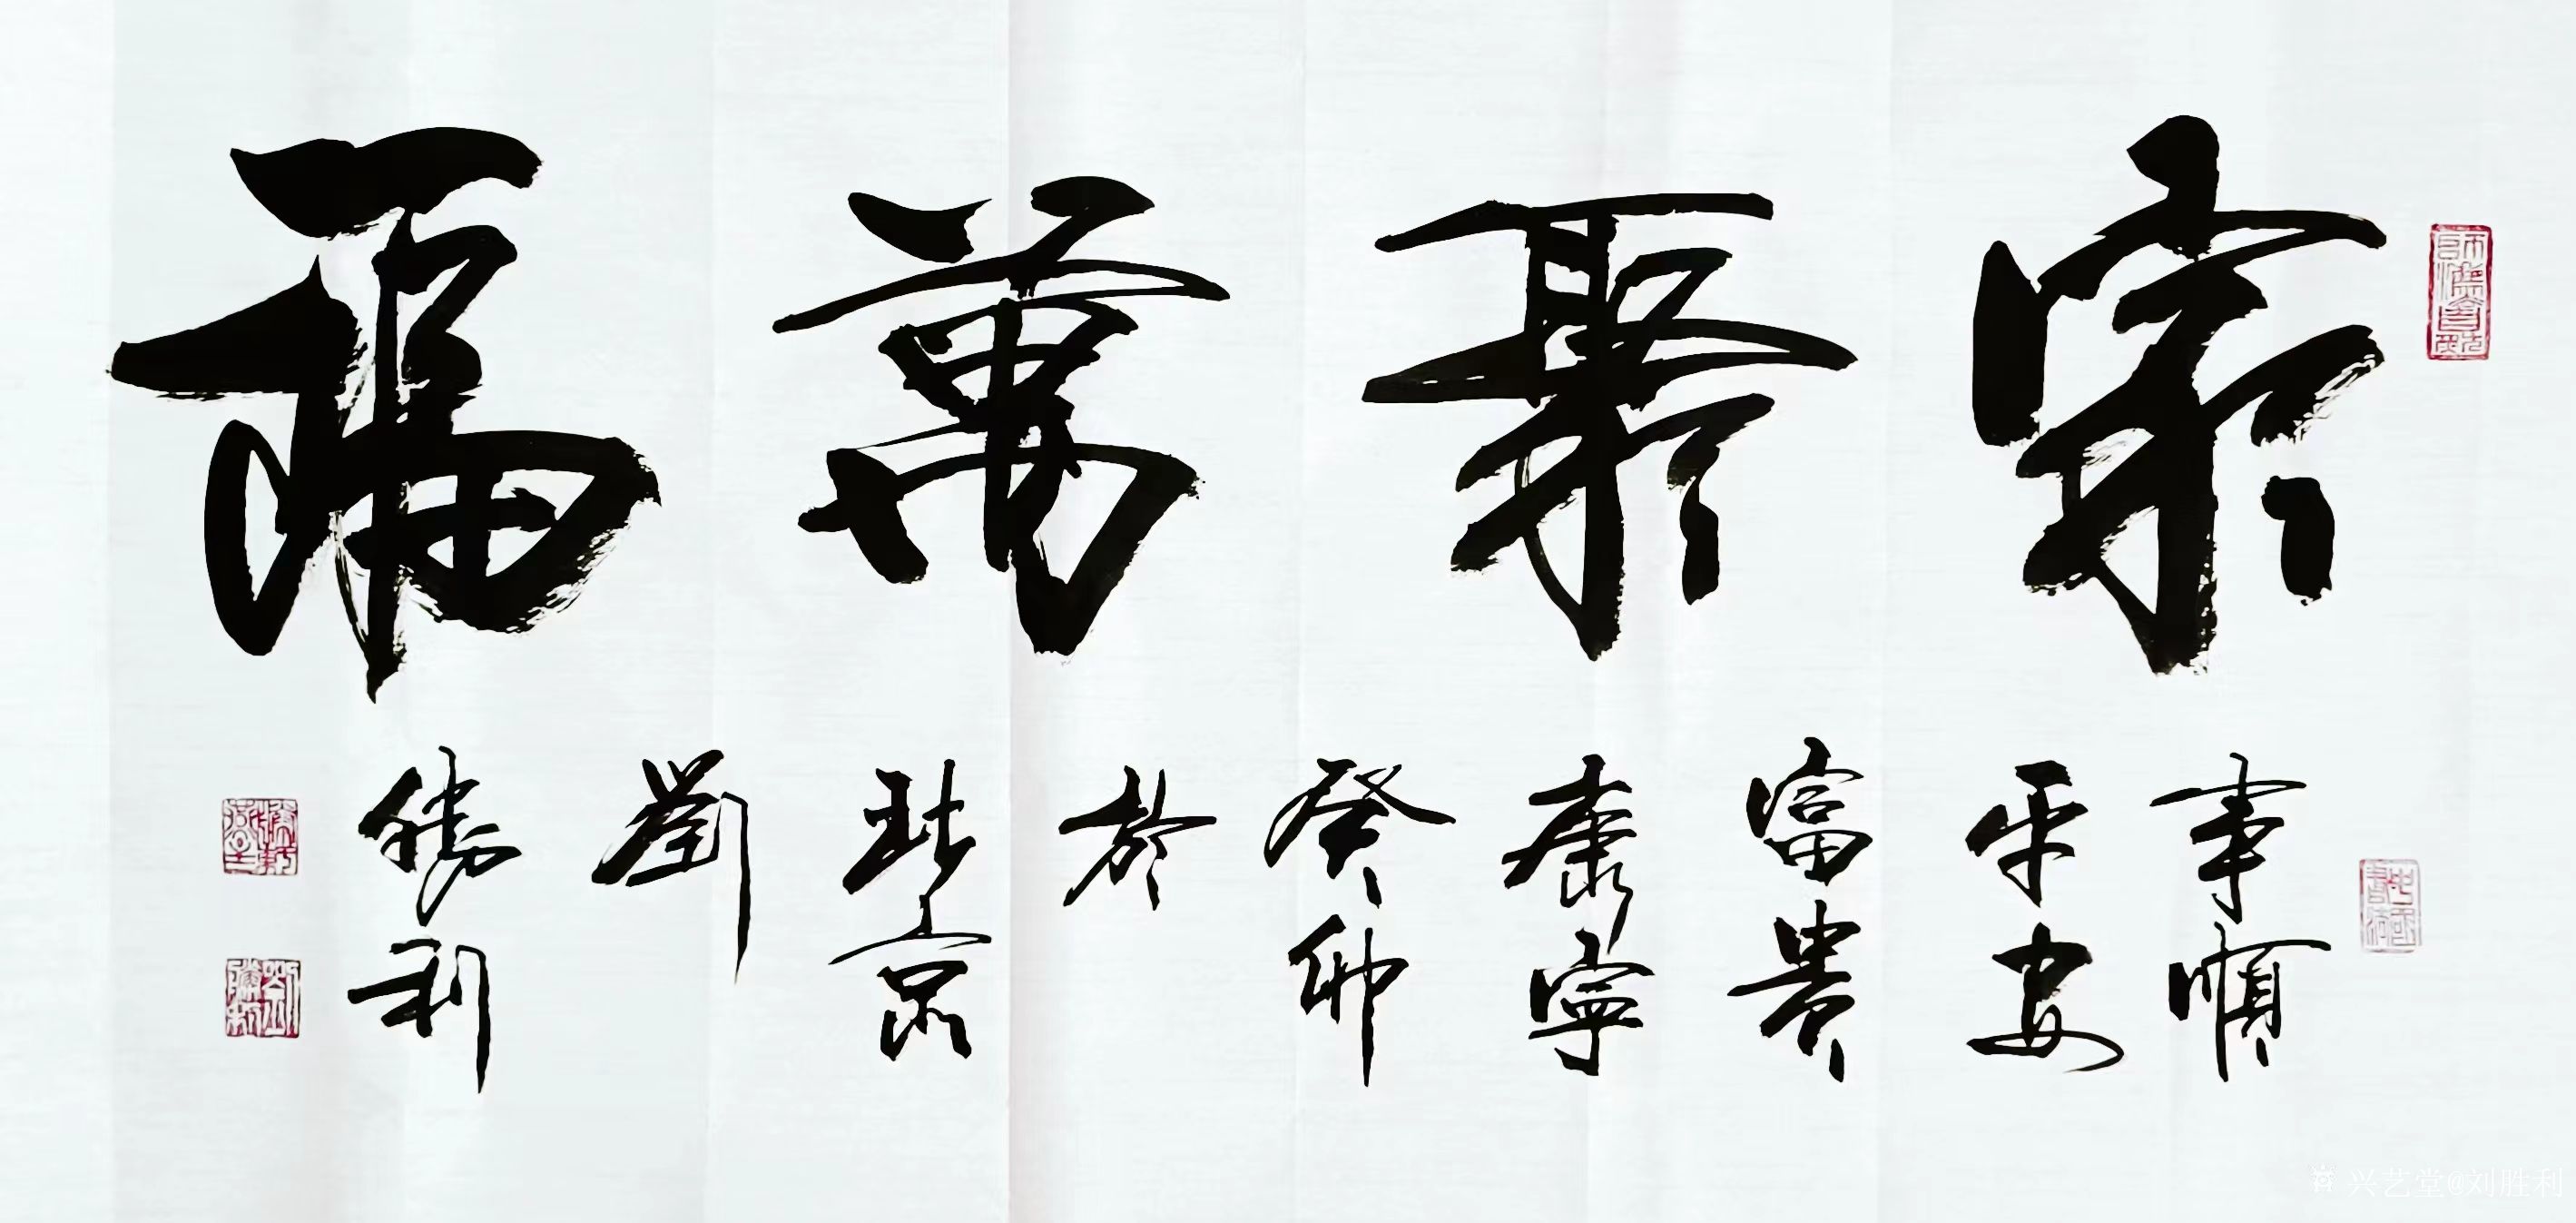 家聚萬福
事順
平安
富貴
康寧
癸卯
於
北京
劉
勝利
劉勝利
兴艺堂@刘胜利